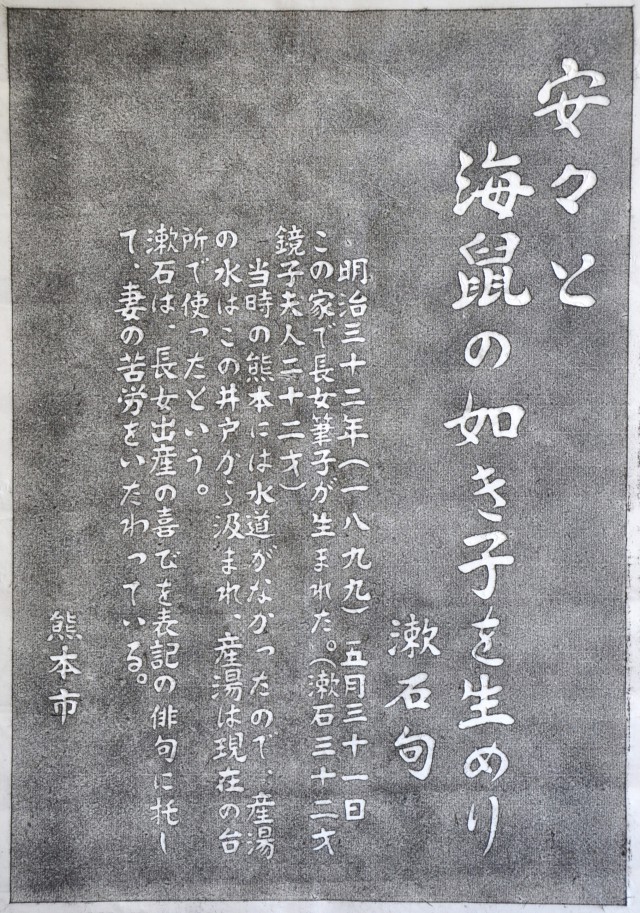 安々と
海鼠の如き子を生めり
漱石句
。明治三十二年(一八九九)五月三十一日
この家で長女筆子が生まれた。(漱石三十二才
鏡子夫人二十二才)
当時の熊本には水道がなかったので、産湯
の水はこの井戸から汲まれ、産湯は現在の台
所で使ったという。
漱石は、長女出産の喜びを表記の俳句に托し
て、妻の苦労をいたわっている。
熊本市